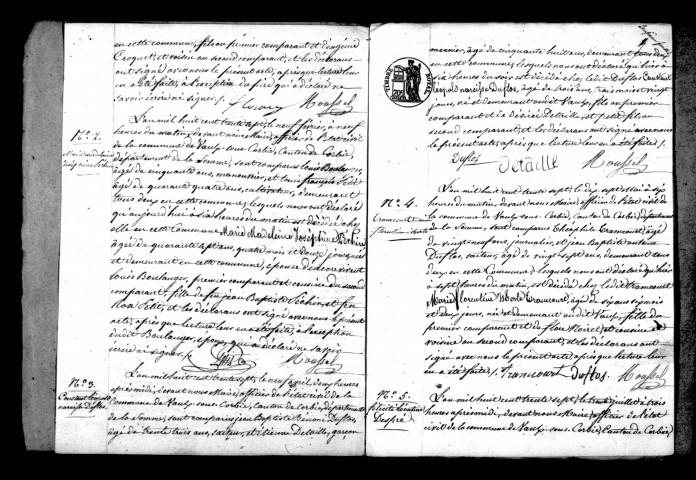 en cette commune, fils du premier comparant et d'eugénie
Croquet, et voisin du second comparant, et les déclarans
ont signé avec nous le présent acte, après que lecture leur
en a été faite, à l'exception du qui a déclaré ne
savoir écrire ni signer /.
Moussel
N.° 2.
L'an mil huit cent trente sept, le neuf février, à neuf
heures du matin, devant nous Maire, officier de l'état civil de
la commune de Vaulx-sous-Corbie, Canton de Corbie,
département de la Somme, sont comparus Louis Boulanger,
âgé de cinquante ans, manouvrier, et Louis françois Petit
âgé de quarante quatre ans, cultivateur, demeurant
tous deux en cette commune, lesquels nous ont déclaré
qu'aujourd'hui à six heures du matin est décédée chez
elle en cette commune Marie Madeleine Joséphine Péchin
âgée de quarante sept ans, quatre mois et douze jours, née
et demeurant en cette commune, épouse de
Louis Boulanger, premier comparant et cousine du second
comparant, fille de feu Jean Baptiste Péchin et feue
Petit, et les déclarans ont signé avec nous le présent
acte, après que lecture leur en a été faite, à l'exception
dudit Boulanger, époux, qui a déclaré ne savoir
écrire ni signer /.
Petit Moussel
N.° 3.
Constant Léopold
narcisse Duflos.
L'an mil huit cent trente sept, le neuf avril, deux heures
après midi, devant nous Maire, officier de l'état civil de la
commune de Vaulx-sous-Corbie, Canton de Corbie, département
de la Somme, sont comparus jean baptiste Duflos,
âgé de trente trois ans, et étienne Detaille, garçon
TIMBRE ROYAL
meunier, âgé de cinquante huit ans, demeurant tous deux
en cette commune, lesquels nous ont déclaré qu'hier à
six heures du soir est décédé chez ledit Duflos Constant
léopold narcisse Duflos, âgé de trois ans, trois mois et vingt
jours, né et demeurant audit Vaulx, fils du premier
comparant et de désirée Detaille, et petit fils du
second comparant, et les déclarans ont signé avec nous
le présent acte, après que lecture leur en a été faite /.
Duflos Detaille Moussel
N.° 4.
L'an mil huit cent trente sept, le dix sept Mai à six
heures du matin, devant nous Maire, officier de l'état civil de
la commune de Vaulx-sous-Corbie, Canton de Corbie, département
de la Somme, sont comparus théophile Tramcourt, âgé
de vingt neuf ans, journalier, et jean Baptiste antoine
Duflos, âgé de vingt sept ans, demeurant tous
deux en cette Commune, lesquels nous ont déclaré qu'hier
à sept heures du matin, est décédée chez ledit Tramcourt
Marie florentine Tramcourt, âgée de six ans six mois
et deux jours, née et demeurant audit Vaulx, fille du
premier comparant et de flore Noiret, et cousine et
voisine au second comparant, et les déclarans ont
signé avec nous le présent acte après que lecture leur
en a été faite /. Trancourt Duflos Moussel
N.° 5.
L'an mil huit cent trente sept, le juillet à trois
heures après midi, devant nous Maire, officier de l'état
civil de la commune de Vaulx-sous-Corbie, Canton de Corbie,